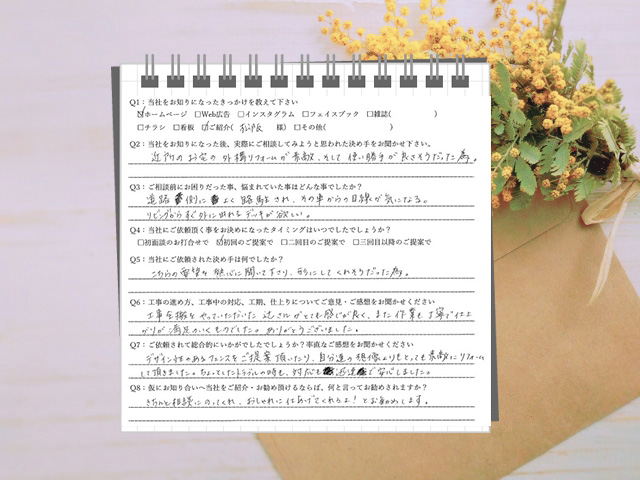 Q1：当社をお知りになったきっかけを教えて下さい
☑ホームページ □Web広告 □インスタグラム □フェイスブック □雑誌( )
□チラシ □看板 ☑ご紹介( 松阪 様) □その他( )
Q2：当社をお知りになった後、実際にご相談してみようと思われた決め手をお聞かせ下さい。
近所のお宅の外構リフォームが素敵、そして使い勝手が良さそうだった為。
Q3：ご相談前にお困りだった事、悩まれていた事はどんな事でしたか？
道路側によく路駐され、その車からの目線が気になる。
リビングからすぐ外に出れるデッキが欲しい。
Q4：当社にご依頼頂く事をお決めになったタイミングはいつでしたでしょうか？
□初面談のお打合せで ☑初回のご提案で □二回目のご提案で □三回目以降のご提案で
Q5：当社に依頼された決め手は何でしたか？
こちらの要望を熱心に聞いて下さり、形にしてくれそうだった為。
Q6：工事の進め方、工事中の対応、工期、仕上りについてご意見・ご感想をお聞かせください
工事全般をやっていただいた辻さんがとても感じが良く、また作業も丁寧で仕上
がりが満足のいくものでした。ありがとうございました。
Q7：ご依頼されて総合的にいかがでしたでしょうか？率直なご感想をお聞かせください
デザイン性のあるフェンスをご提案頂いたり、自分達の想像よりもとても素敵にリフォーム
して頂きました。ちょっとしたトラブルの時も、対応も迅速で安心しました。
Q8：仮にお知り合いへ当社をご紹介・お勧め頂けるならば、何と言ってお勧めされますか？
きちんと相談にのってくれ、おしゃれに仕上げてくれるよ！とお勧めします。